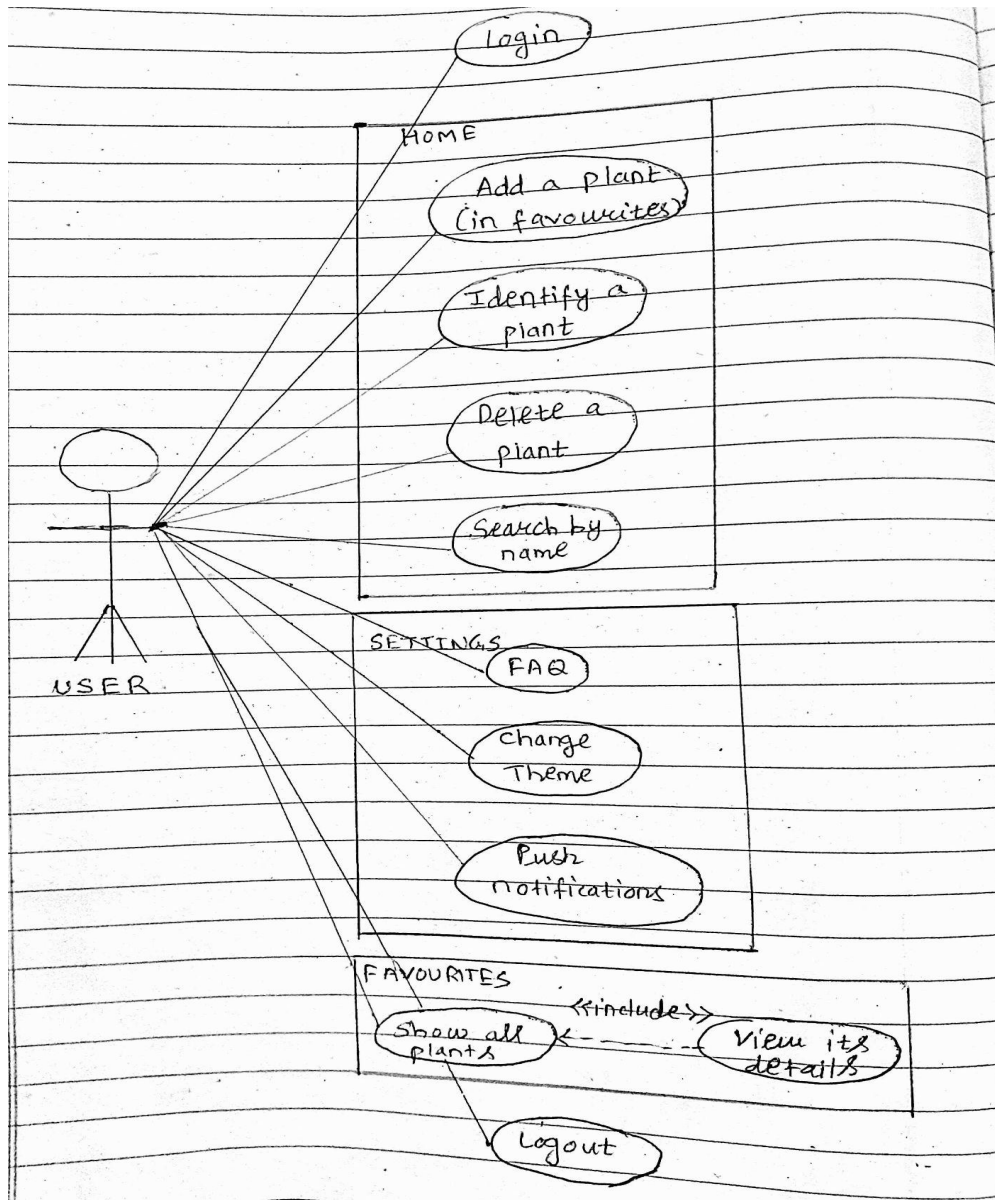 Login
HOME
Add a plant
(in favourites)
Identify a
plant
Delete a
plant
Search by
name
USER
SETTINGS
FAQ
Change
Theme
Push
notifications
FAVOURITES
<<include>>
Show all
plants
View its
details
Logout